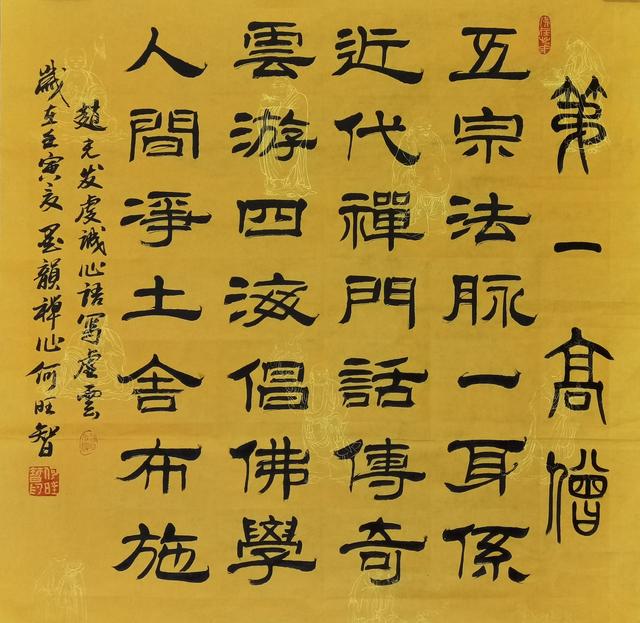 第一高僧
五宗法脉一身係
近代禪門話傳奇
雲游四海倡佛學
人間淨土舍布施
趙元发虔诚心語寫虛雲
歲在壬寅夏墨韻禅心何旺智